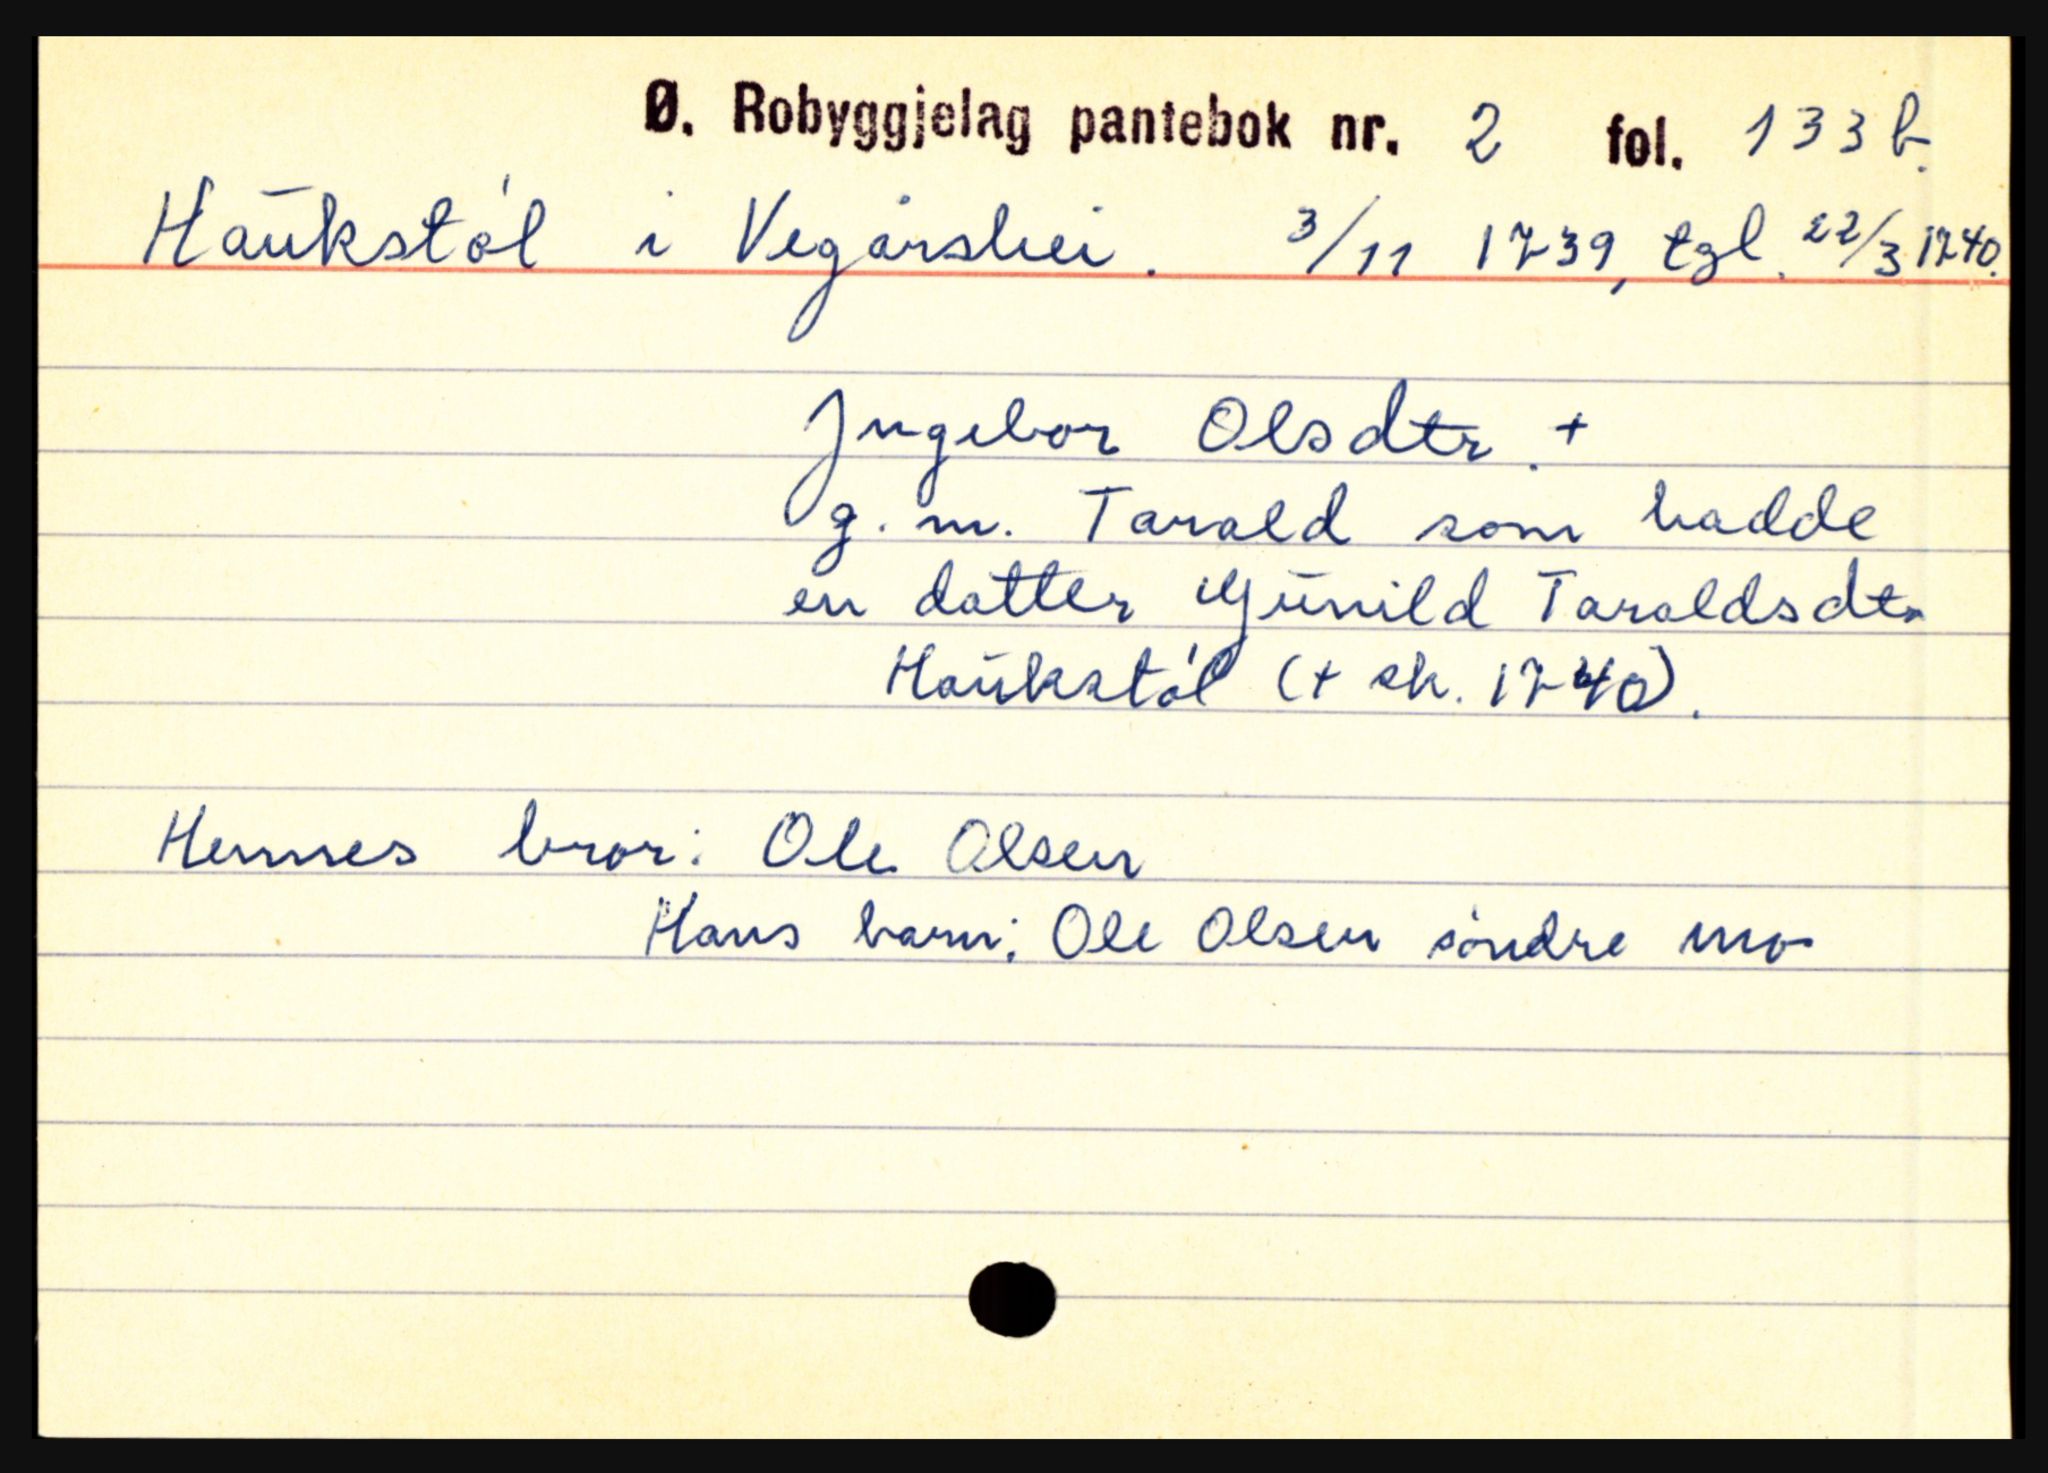 Ø. Robyggjelag pantebok nr. 2 fol. 133 b.
Haukstøl i Vegårshei. 3/11 1739, tgl. 22/3 1740.
Ingebor Olsdtr. +
g. m. Tarald som hadde
en datter Gunild Taraldsdtr
Haukstøl (+ sk. 1740).
Hennes bror: Ole Olsen
Hans barn: Ole Olsen søndre Mo